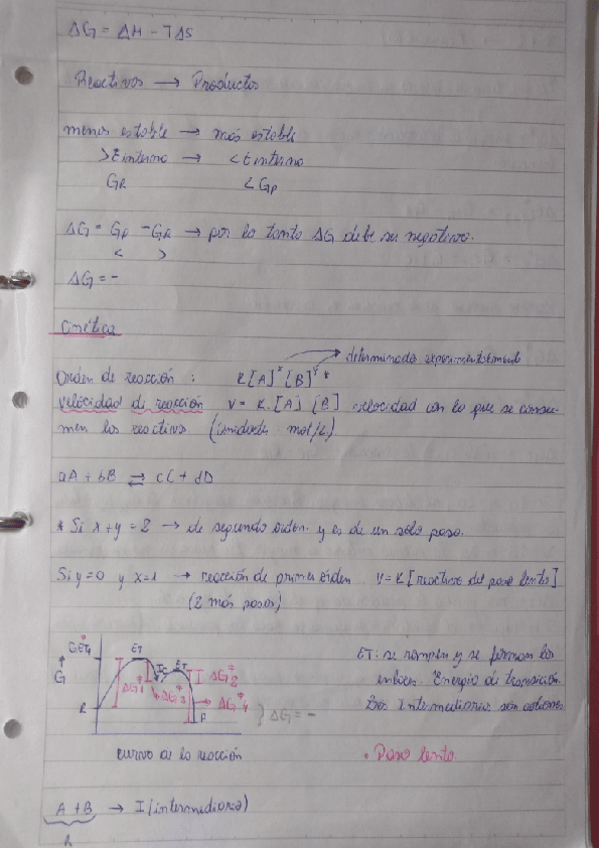 ΔG = ΔH - TΔS
Reactivos → Productos
menos estable → más estable
> E interna → < E interna
GR < Gp
ΔG = Gp - GR → por lo tanto ΔG debe ser negativo.
< >
ΔG = -
Cinética
→ determinado experimentalmente
Orden de reacción : K [A]ˣ [B]ʸ *
velocidad de reacción V = K. [A] [B] velocidad con la que se consu-
men los reactivos (unidades mol/L)
aA + bB ⇌ cC + dD
* Si x + y = 2 → de segundo orden y es de un solo paso.
Si y = 0 y x = 1 → reacción de primer orden V = K [reactivo del paso lento]
(2 más pasos)
G ET
ET
ET
ΔG‡2
G
ΔG‡1
ΔG‡3
ΔG‡4
R
P
ΔG = -
ET: se rompen y se forman los
enlaces. Energía de transición.
Los Intermediarios son
curva de la reacción
• Paso lento.
A + B → I (intermediario)